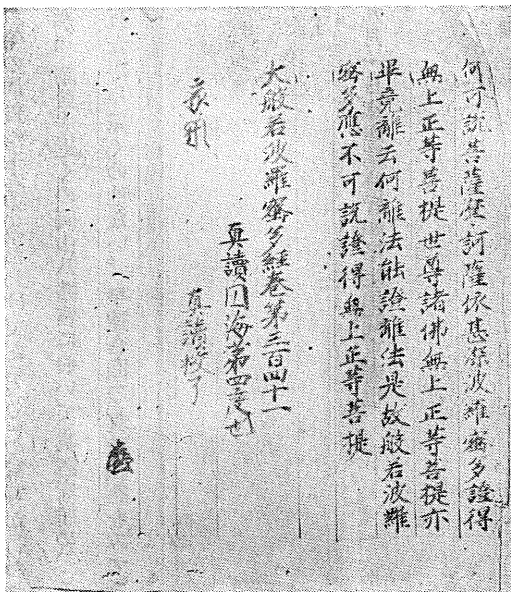 何可說菩薩摩訶薩依甚深波羅蜜多證得
無上正等菩提世尊諸佛無上正等菩提亦
畢竟離云何離法能證離法是故般若波羅
蜜多應不可說證得無上正等菩提
大般若波羅蜜多經卷第三百四十一
真讀海第四度也
真讀校了